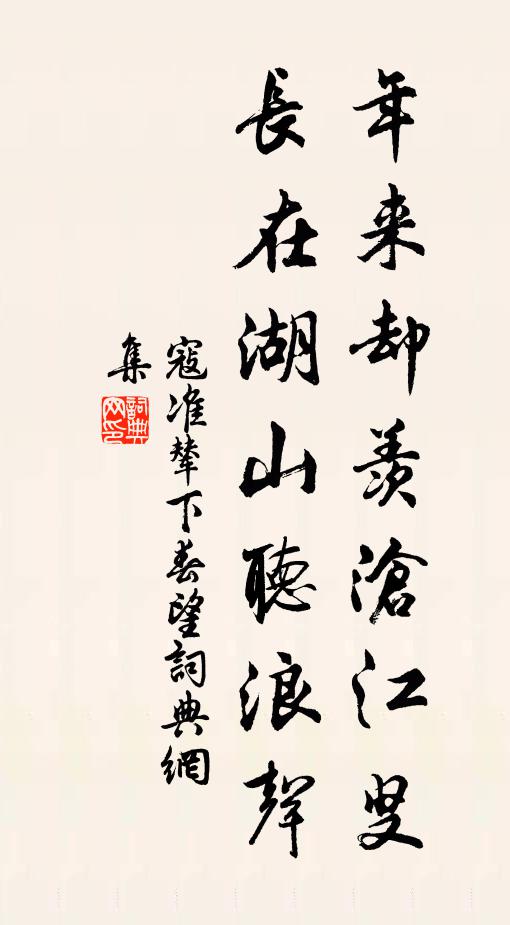 年来却羡滄江叟
長在湖山聽浪聲
寇准輦下春望詞典網
集
詞典网印